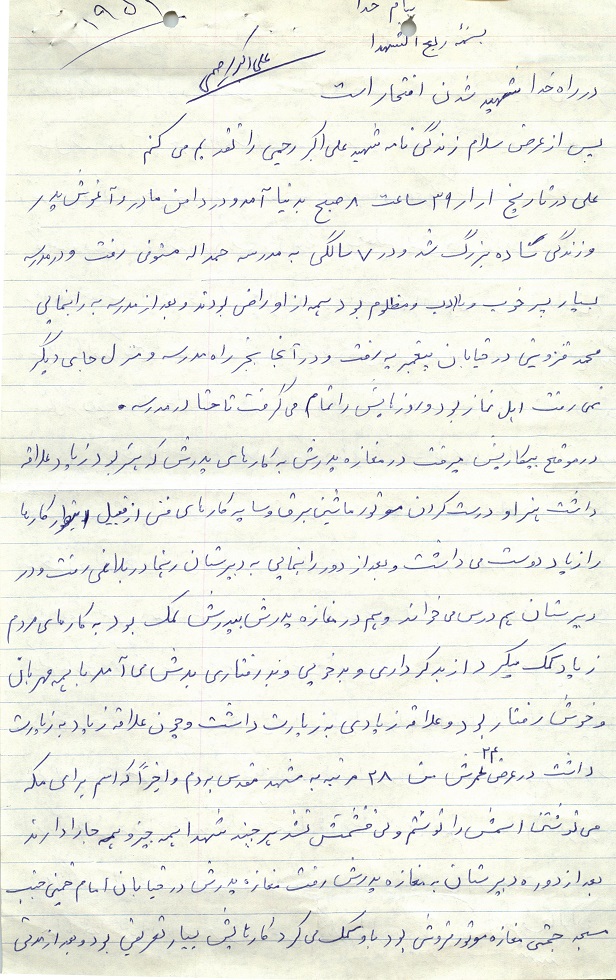 پیام خدا
۱۹۵۱
بسمه ربع الشهدا
علی اکبر رحیمی
در راه خدا شهید شدن افتخار است
پس از عرض سلام زندگی نامه شهید علی اکبر رحیمی را تقدیم می کنم
علی در تاریخ ۱ر۱ر۳۹ ساعت ۸ صبح بدنیا آمد و در دامن مادر و آغوش پدر
و زندگی ساده بزرگ شد و در ۷ سالگی به مدرسه حمداله مستوفی رفت و در مدرسه
بسیار پسر خوب و باادب و مظلوم بود همه از او راضی بودند و بعد از مدرسه به راهنمایی
محمد قزوینی در خیابان پیغمبریه رفت و در آنجا بجز راه مدرسه و منزل جای دیگر
نمی رفت اهل نماز بود و روزهایش را تمام می گرفت تا حتا در مدرسه .
در موقع بیکاریش میرفت در مغازه پدرش به کارهای پدرش که هنر بود زیاد علاقه
داشت هنر او درست کردن موتور ماشین برق و سایه کارهای فنی از قبیل اینطور کارها
را زیاد دوست می داشت و بعد از دور راهنمایی به دبیرستان رفت و در
دبیرستان هم درس می خواند و هم در مغازه پدرش بپدرش کمک بود به کارهای مردم
زیاد کمک میکرد از بدکرداری و بدخویی و بدرفتاری بدش می آمد با همه مهربان
و خوش رفتار بود و علاقه زیادی به زیارت داشت و چون علاقه زیاد به زیارت
داشت در عرض ۲۴ عمرش من ۲۸ مرتبه به مشهد مقدس بردم و اخیراً که اسم برای مکه
می نوشتن اسمش را نوشتم ولی قسمتش نشد هر چند شهدا همه چیز و همه جا را دارند
بعد از دوره دبیرستان به مغازه پدرش رفت مغازه پدرش در خیابان امام خمینی جنب
مسجد مغازه موتور فروشی بود باو کمک می کرد کارهایش بسیار تعریفی بود و بعد از مدتی